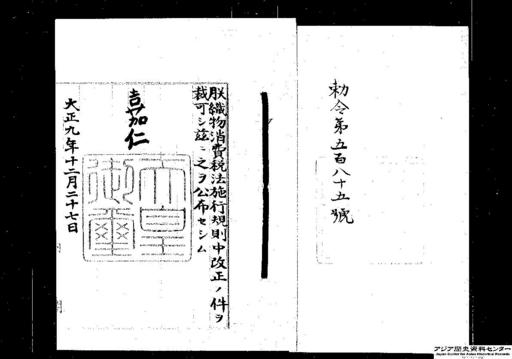 勅令第五百八十五號
朕織物消費税法施行規則中改正ノ件ヲ
裁可シ玆ニ之ヲ公布セシム
嘉仁
天皇
御璽
大正九年十二月二十七日
アジア歴史資料センター
Japan Center for Asian Historical Records